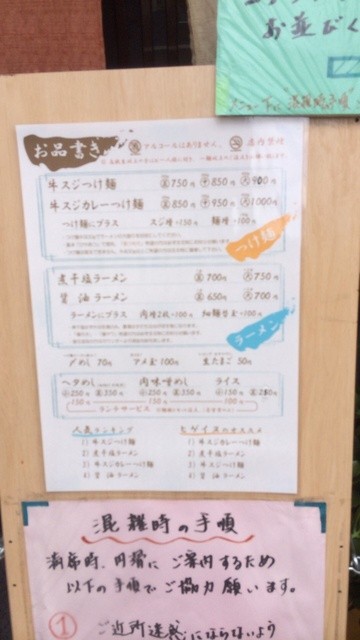 お並びく
お品書き
アルコールはありません。 店内禁煙
牛スジつけ麺 並750円 中850円 大900円
牛スジカレーつけ麺 並850円 中950円 大1000円
つけ麺にプラス スジ増+150円 麺増+100円
つけ麺
煮干塩ラーメン 並700円 大750円
醤油ラーメン 並650円 大700円
ラーメンにプラス 肉増2枚+100円
ラーメン
〆めし 70円 アメ玉 100円 生たまご 50円
ヘタめし 肉味噌めし ライス
小250円 並350円 小250円 並350円 小150円 並250円
150円 150円 100円
ランチサービス
人気ランキング ヒゲイズのオススメ
1) 牛スジつけ麺 1) 牛スジカレーつけ麺
2) 煮干塩ラーメン 2) 煮干塩ラーメン
3) 牛スジカレーつけ麺 3) 牛スジつけ麺
4) 醤油ラーメン 4) 醤油ラーメン
混雑時の手順
満席時、円滑にご案内するため
以下の手順でご協力願います。
① ご近所迷惑にならないよう